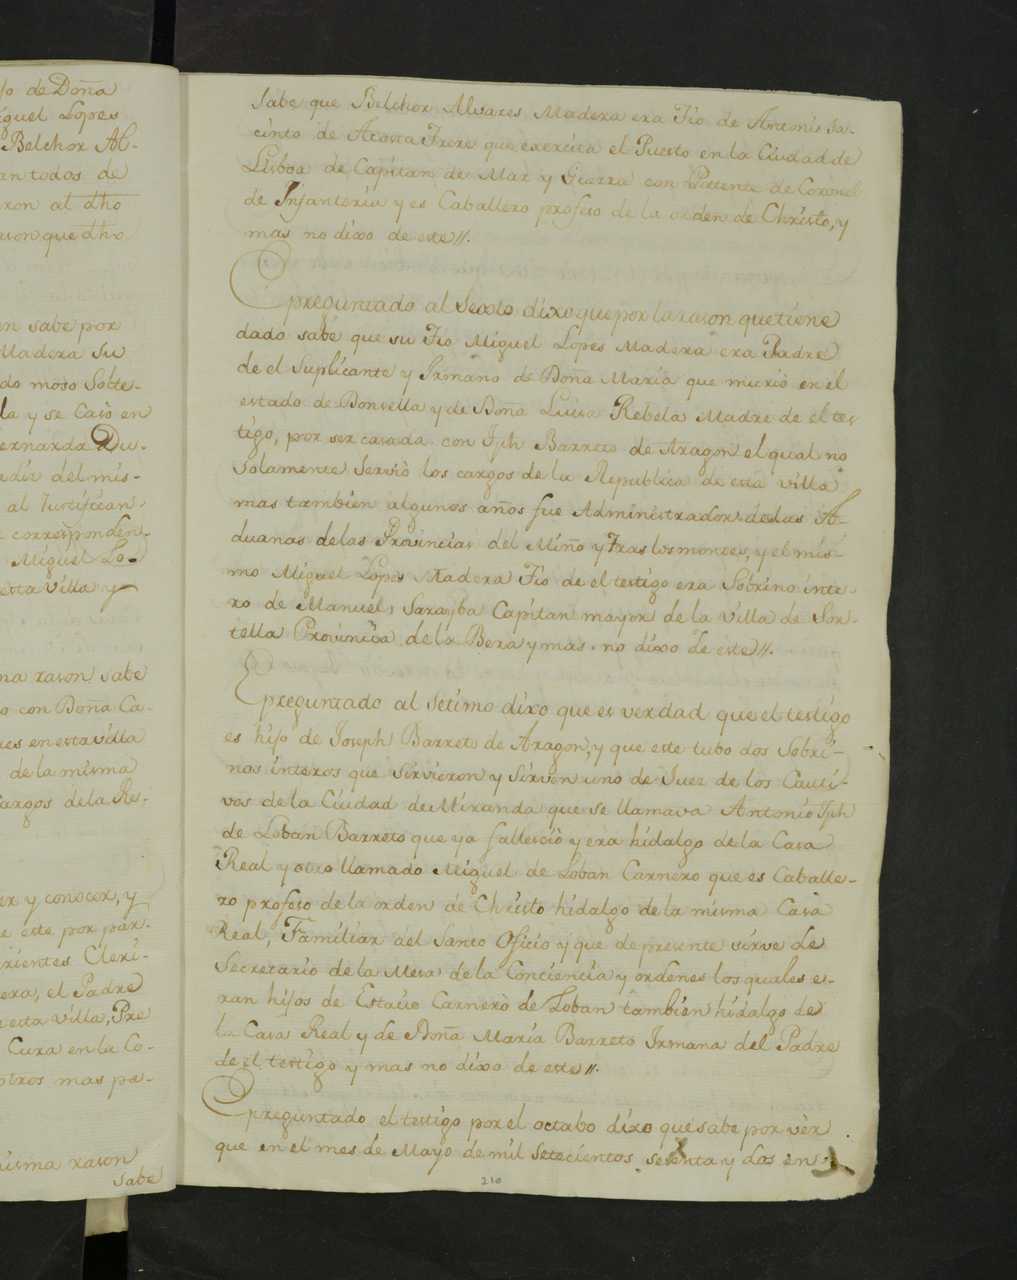 so de Doña
iguel Lopes
Belchor Al-
an todos de
ron al dho
rason que dho
en sabe por
Madera su
do moso Solte-
la y se Casò en
ernarda Du-
adir del mis-
al Justifican-
e corresponden-
Miguel Lo-
esta Villa y
ma rason sabe
o con Doña Ca-
ues en esta villa
de la misma
Cargos de la Re-
er y conocer, y
e este por par-
rientes Cleri-
era, el Padre
esta villa, Pre
Cura en la Co-
otros mas pa-
misma rason
sabe
sabe que Belchor Alvares Madera era Tio de Antonio Ja-
cinto de Acosta Frere que exercita el Puesto en la Ciudad de
Lisboa de Capitan de Mar y Guerra con Patente de Coronel
de Infanteria y es Cavallero profeso de la orden de Christo, y
mas no dixo de este//.
E preguntado al Sexto dixo que por la rason que tiene
dado sabe que su Tio Miguel Lopes Madera era Padre
de el Suplicante y Irmano de Doña Maria que muriò en el
estado de Donsella y de Doña Luisa Rebela Madre de el tes
tigo, por ser casada con Jph Barreto de Aragon el qual no
Solamente Serviò los cargos de la Republica de esta villa
mas tambien algunos años fue Administrador de las A-
duanas de las Provincias del Miño y Traslosmontes, y el mis-
mo Miguel Lopes Madera Tio de el testigo era Sobrino inte-
ro de Manuel Sarayba Capitan mayor de la Villa de Sor-
tella Provincia de la Bera y mas no dixo de este//.
E preguntado al Setimo dixo que es verdad que el testigo
es hijo de Joseph Barret de Aragon, y que este tubo dos Sobri-
nos interos que Sirvieron y Sirven uno de Juez de los Cauti-
vos de la Ciudad de Miranda que se llamava Antonio Jph
de Loban Barreto que ya falleciò y era hidalgo de la Casa
Real y otro llamado Miguel de Loban Carnero que es Caballe-
ro profeso de la orden de Christo hidalgo de la misma Casa
Real, Familiar del Santo Oficio y que de presente sirve de
Secretario de la Mesa de la Conciencia y ordenes los quales e-
ran hijos de Estacio Carnero de Loban tambien hidalgo de
la Casa Real y de Doña Maria Barreto Irmana del Padre
de el testigo y mas no dixo de este//.
E preguntado el testigo por el octabo dixo que sabe por vèr
que en el mes de Mayo de mil Setecientos sesenta y dos en
210